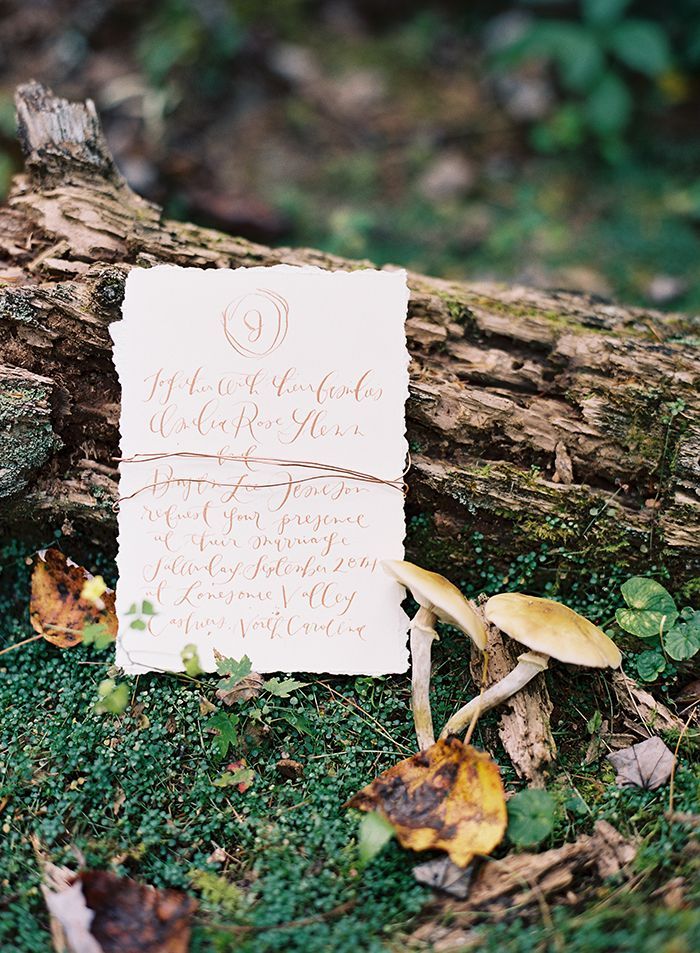 J
Together with their families
Amelia Rose Glenn
and
Lee Jameson
request your presence
at their marriage
Saturday September 28TH
at Lonesome Valley
Cashiers, North Carolina